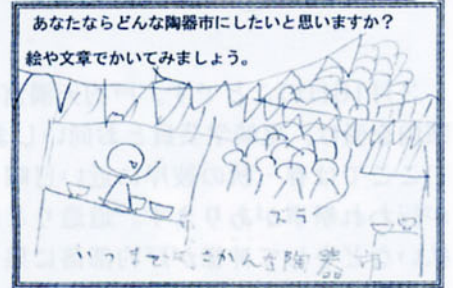 あなたならどんな陶器市にしたいと思いますか？
絵や文章でかいてみましょう。
いつまでも、さかんな陶器市